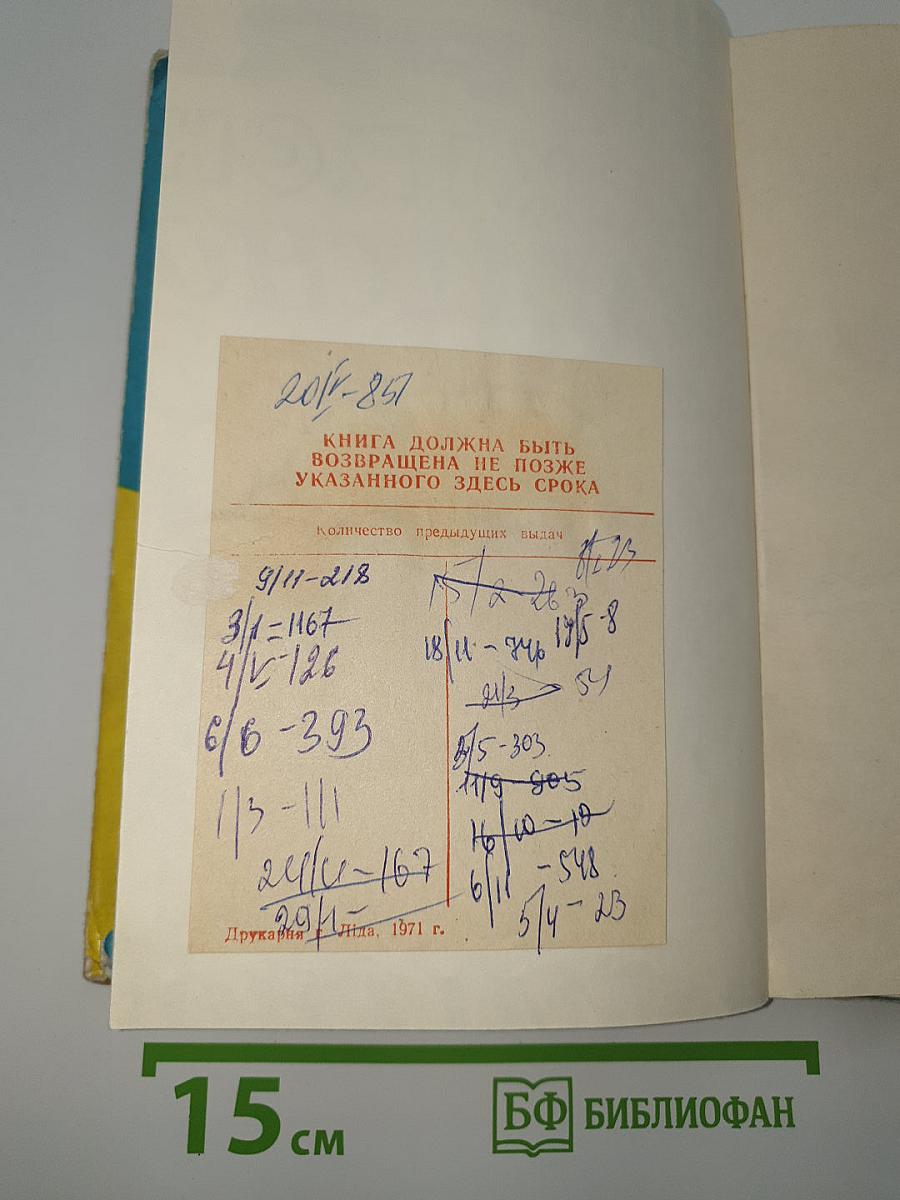 20/V-857
КНИГА ДОЛЖНА БЫТЬ
ВОЗВРАЩЕНА НЕ ПОЗЖЕ
УКАЗАННОГО ЗДЕСЬ СРОКА
Количество предыдущих выдач
9/11-218
3/1=1167
4/V-126
6/6-393
1/3-111
24/11-167
29/1-
15/2-263
17/5-8
18/11-746
21/3
51
5-303
11/9-805
16/10-10
6/11-548
5/4-23
Друкарня г. Ліда, 1971 г.
15 см
БФ БИБЛИОФАН